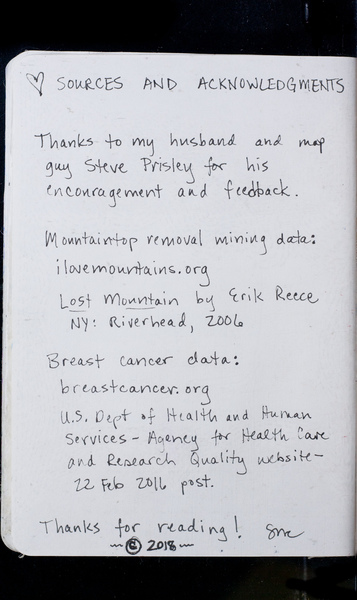 ♡ SOURCES AND ACKNOWLEDGMENTS
Thanks to my husband and map
guy Steve Prisley for his
encouragement and feedback.
Mountaintop removal mining data:
ilovemountains.org
Lost Mountain by Erik Reece
NY: Riverhead, 2006
Breast cancer data:
breastcancer.org
U.S. Dept of Health and Human
Services - Agency for Health Care
and Research Quality website -
22 Feb 2016 post.
Thanks for reading! Sue
~ © 2018 ~